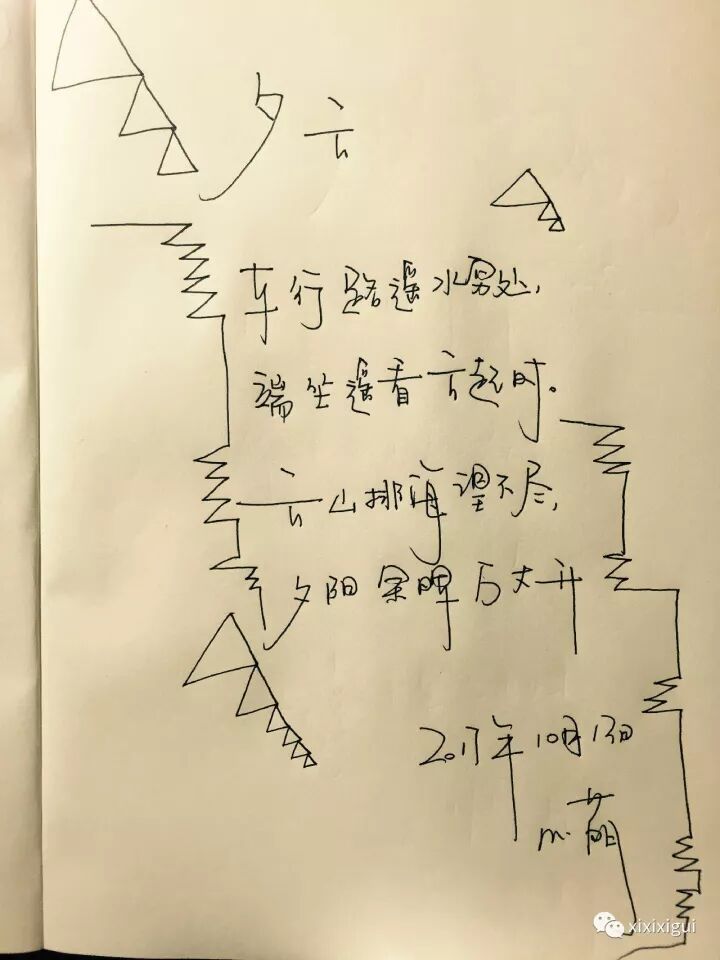 夕云
车行路遥水穷处，
端坐遥看云起时。
云山排海望不尽，
夕阳余晖万丈升
2017年10月13日
m.萌
xixixigui